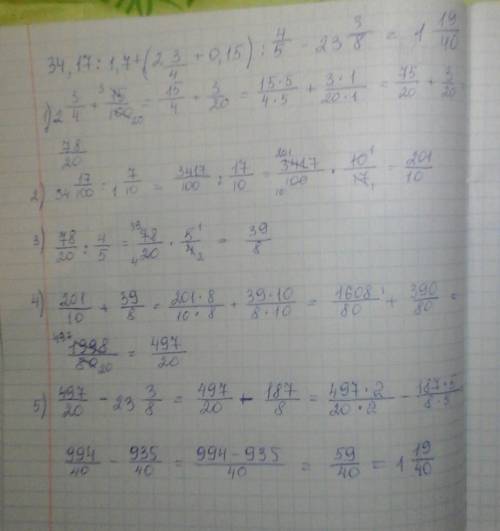 34,17 : 1,7 + (2 3/4 + 0,15) : 4/5 - 23 3/8 = 1 19/40
1) 2 3/4 + 15/100 = 15/4 + 3/20 = 15·5/4·5 + 3·1/20·1 = 75/20 + 3/20
78/20
2) 34 17/100 : 1 7/10 = 3417/100 : 17/10 = 3417/100 · 10/17 = 201/10
3) 78/20 : 4/5 = 78/20 · 5/4 = 39/8
4) 201/10 + 39/8 = 201·8/10·8 + 39·10/8·10 = 1608/80 + 390/80 =
1998/80 = 497/20
5) 497/20 - 23 3/8 = 497/20 - 187/8 = 497·2/20·2 - 187·5/8·5
994/40 - 935/40 = 994-935/40 = 59/40 = 1 19/40